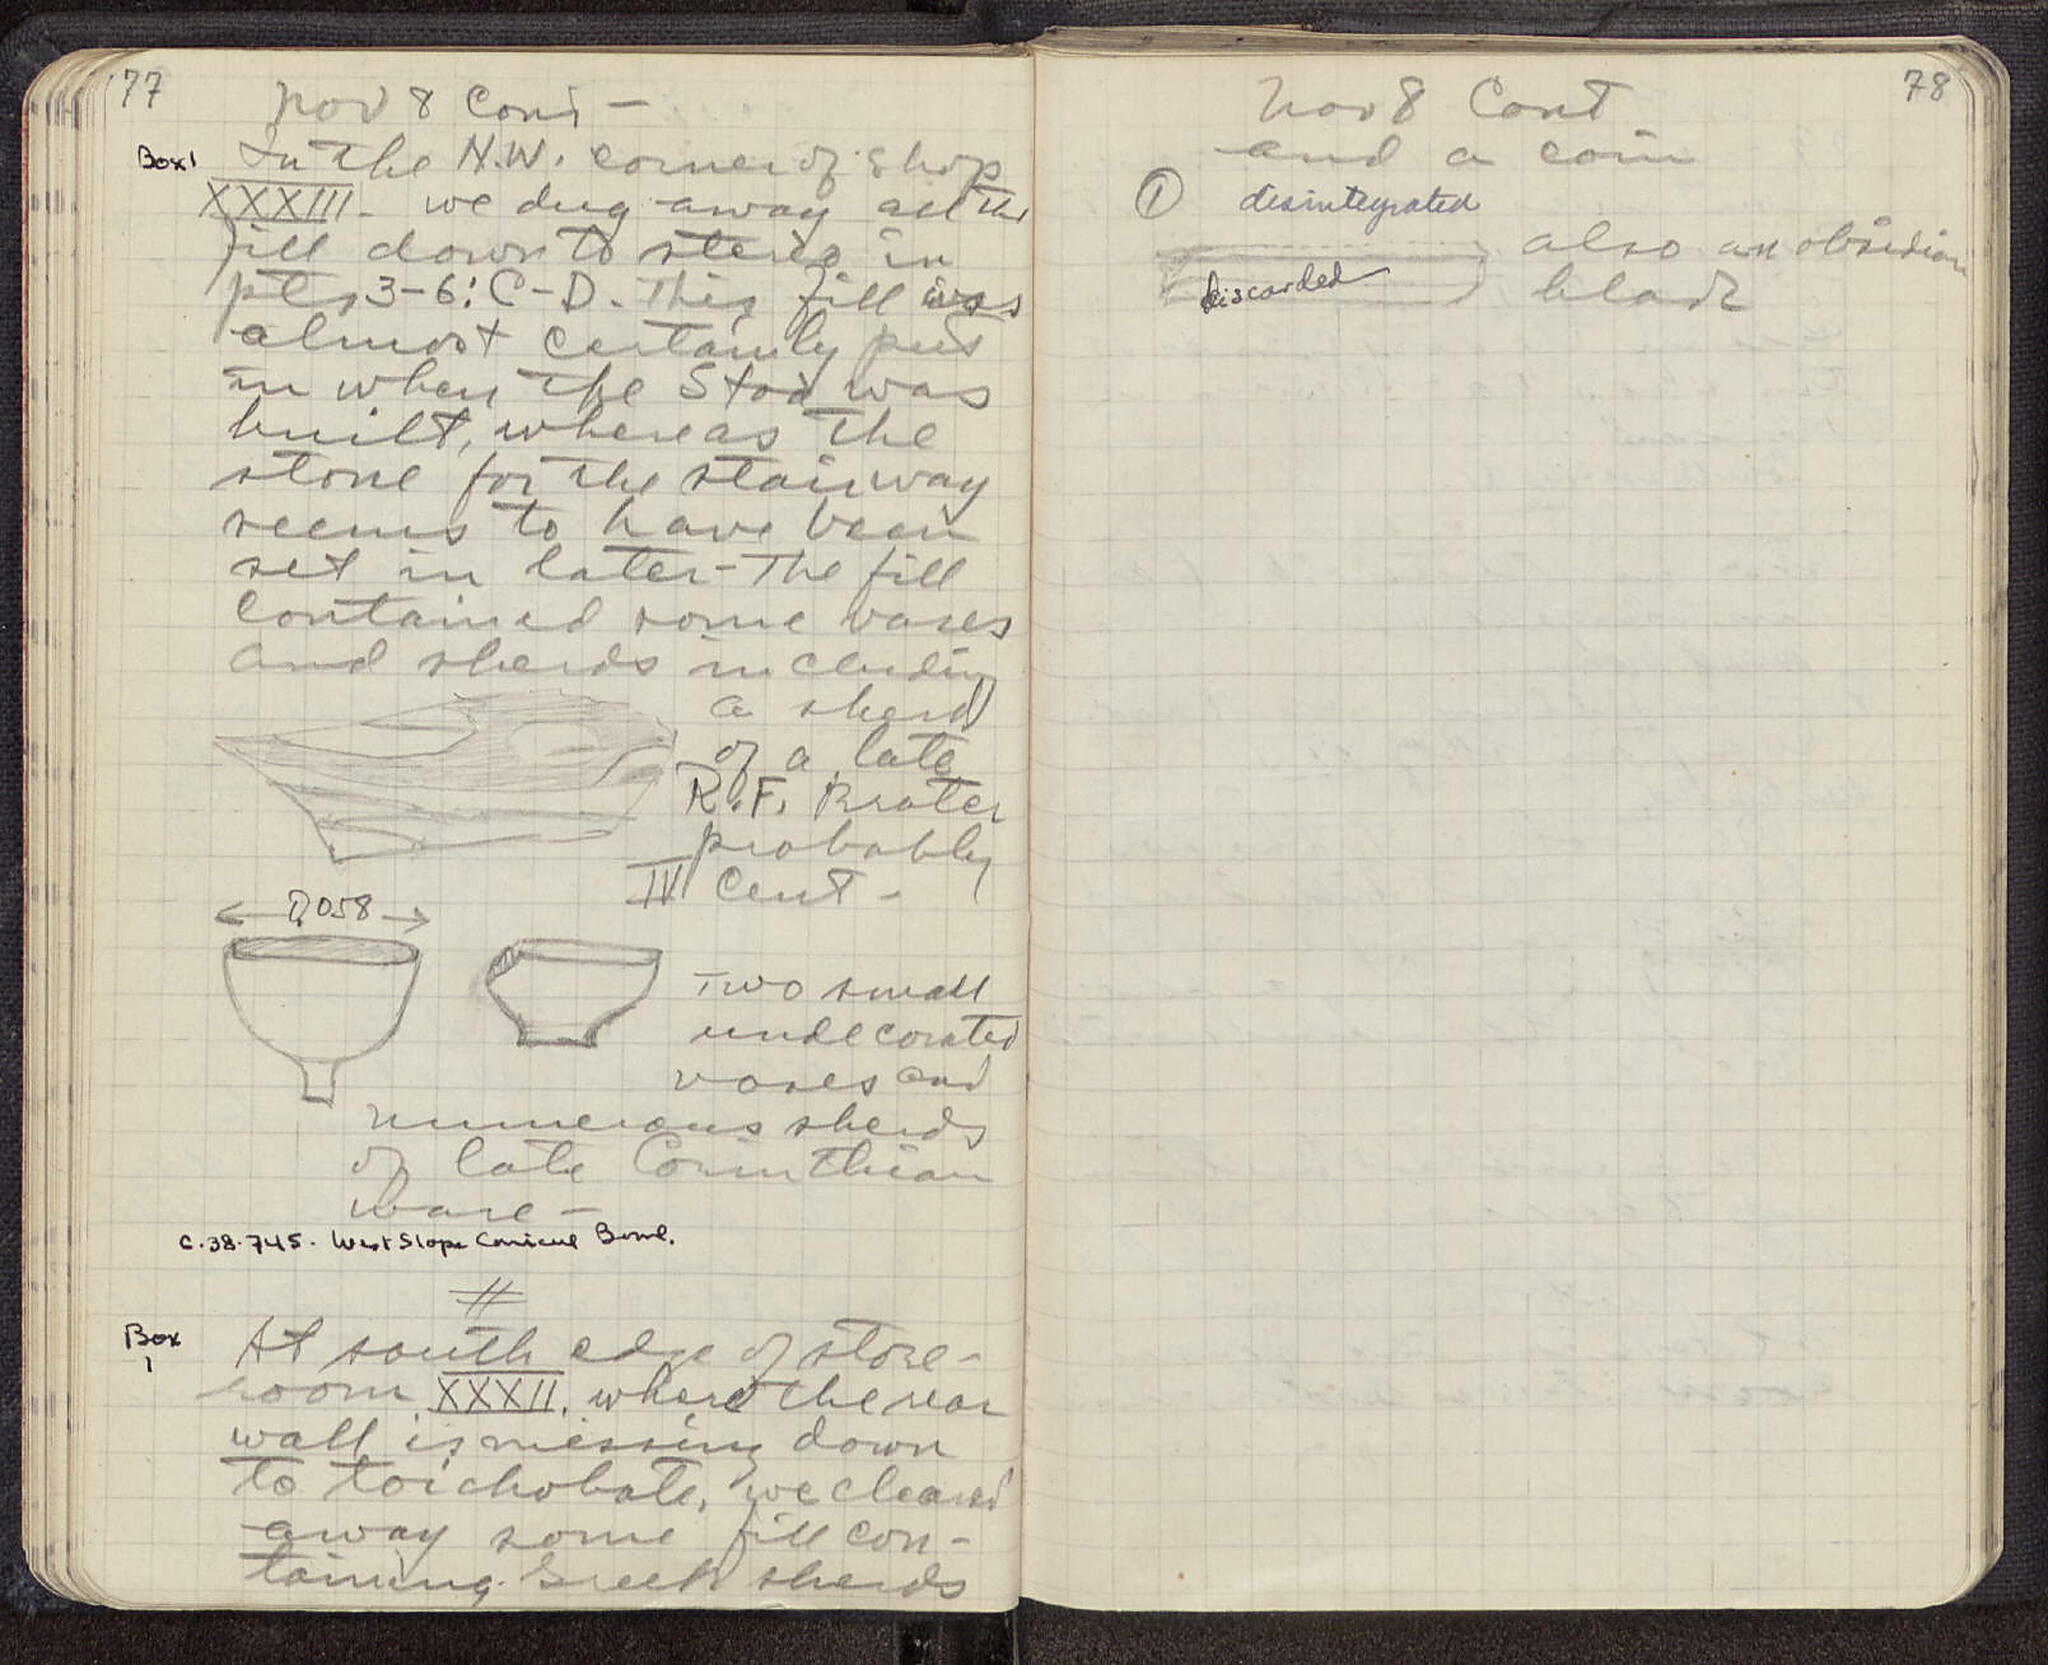 77
Nov 8 Cont -
Box 1
In the N.W. corner of Shop
XXXIII - we dug away all the
fill down to stereo in
pts, 3-6: C-D. This fill was
almost certainly put
in when the Stoa was
built, whereas the
stone for the stairway
seems to have been
set in later - The fill
contained some vases
and sherds including
a sherd
of a late
R.F. Krater
probably
IV Cent -
D.058
Two small
undecorated
vases and
numerous sherds
of late Corinthian
ware -
C.38.745. West Slope Conical Bowl.
Box
1
At south edge of store-
room XXXII, where the rear
wall is missing down
to toichobate, we cleared
away some fill con-
taining Greek sherds
78
Nov 8 Cont
and a coin
1 disintegrated
also an obsidian
discarded
blade